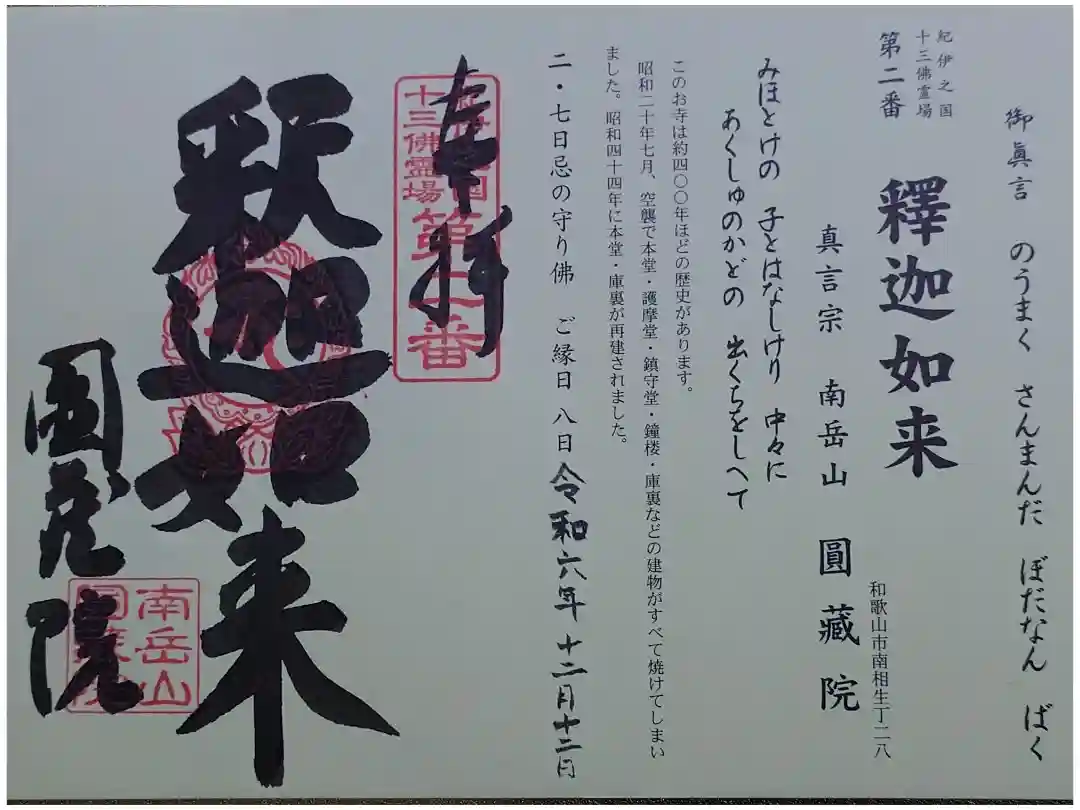 御眞言　のうまく　さんまんだ　ぼだなん　ばく
紀伊之国
十三佛霊場
第二番
釋迦如来
和歌山市南相生丁二八
真言宗　南岳山　圓藏院
みほとけの　子とはなしけり　中々に
あくしゅのかどの　出くちをしへて
このお寺は約四〇〇年ほどの歴史があります。
昭和二十年七月、空襲で本堂・護摩堂・鎮守堂・鐘楼・庫裏などの建物がすべて焼けてしまい
ました。昭和四十四年に本堂・庫裏が再建されました。
二・七日忌の守り佛　ご縁日 八日
令和六年十二月十二日
奉拝
国
十三佛霊場
第二番
釈迦如来
圓蔵院
南岳山